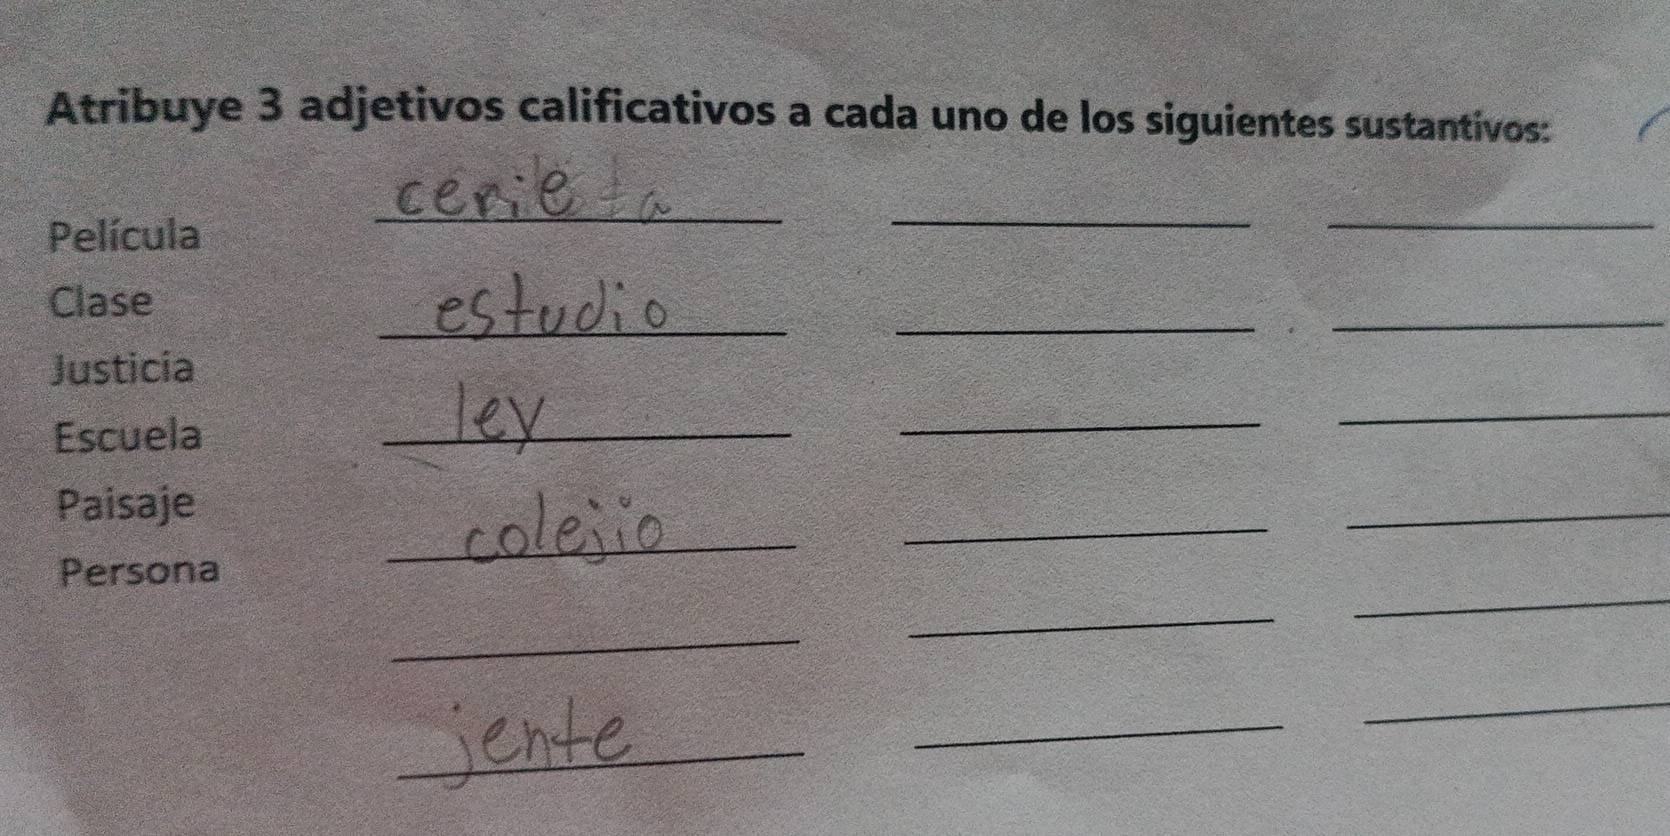 Atribuye 3 adjetivos calificativos a cada uno de los siguientes sustantivos:
Película cerieta
Clase estudio
Justicia
Escuela ley
Paisaje colejio
Persona
jente